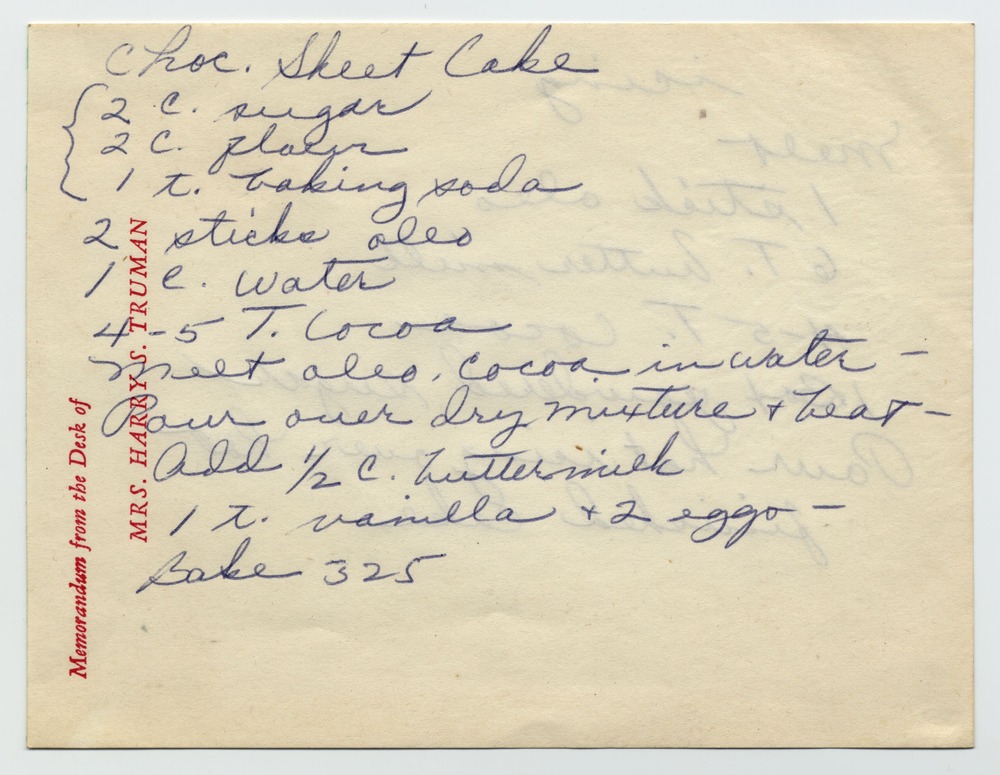 Choc. Sheet Cake
2 C. sugar
2 C. flour
1 t. baking soda
2 sticks oleo
1 C. water
4-5 T. Cocoa
Melt oleo, cocoa in water -
Pour over dry mixture + beat -
Add 1/2 C. buttermilk
1 t. vanilla + 2 eggs -
Bake 325
Memorandum from the Desk of
MRS. HARRY S. TRUMAN